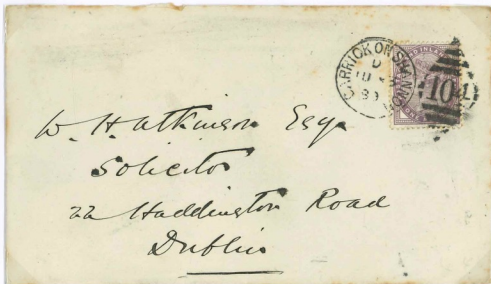 CARRICK ON SHANNON
D
89
104
W. H. Atkinson Esqr
Solicitor
22 Haddington Road
Dublin